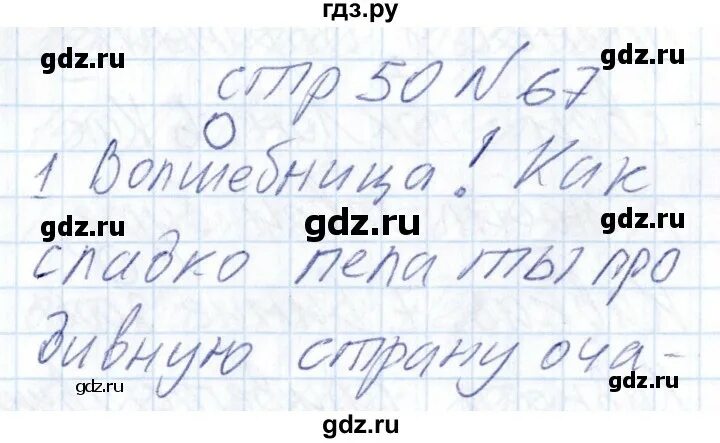 гдз.ру
gdz.ru gdz.ru
стр 50 № 67
1 Волшебница! Как
gdz.ru gdz.ru gdz.ru
сладко пела ты про
дивную страну оча-
gdz.ru gdz.ru
gdz.ru